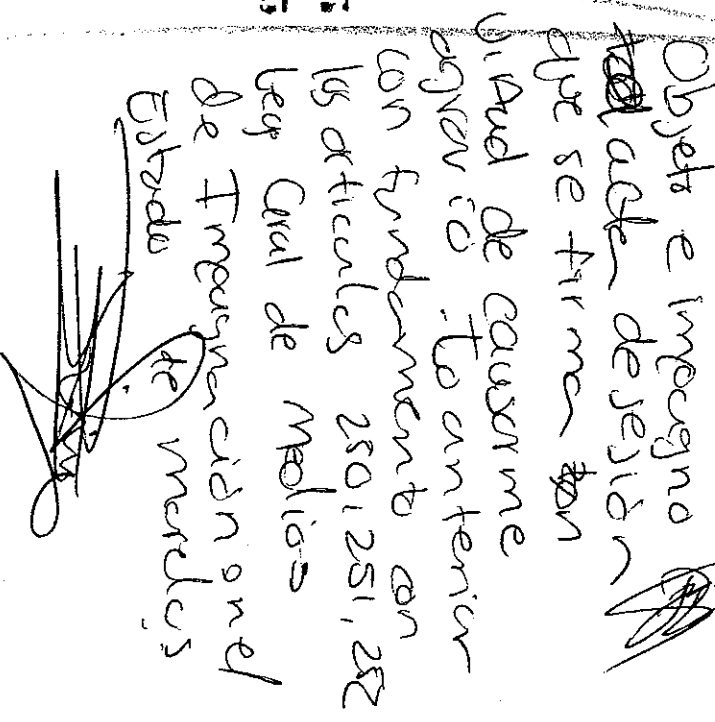 Objeto e impugno
acta de sesión
que se firma en
virtud de causarme
agravio. Lo anterior
con fundamento con
los articules 250, 251, 252
Ley Gral de Medios
de Impugnación on el
Estado de Morelos